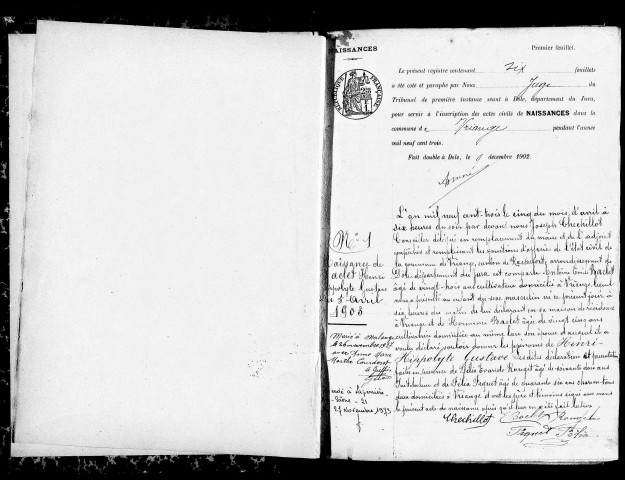 NAISSANCES
Premier feuillet.
Le présent registre contenant six feuillets
a été coté et paraphé par Nous Juge du
Tribunal de première instance séant à Dole, département du Jura,
pour servir à l'inscription des actes civils de NAISSANCES dans la
commune de Vriange pendant l'année
mil neuf cent trois.
Fait double à Dole, le 9 décembre 1902.
RÉPUBLIQUE FRANÇAISE
L'an mil neuf cent trois le cinq du mois d'avril à
six heures du soir par devant nous Joseph Chechillot
Conseiller délégué en remplacement du maire et de l'adjoint
empêchés et remplissant les fonctions d'officier de l'état civil de
la commune de Vriange, canton de Rochefort, arrondissement de
Dole, département du Jura est comparu
âgé de vingt-trois ans cultivateur domicilié à Vriange lequel
nous a présenté un enfant du sexe masculin né ce jourd'hui à
six heures du matin de lui déclarant en sa maison de résidence
à Vriange et de âgée de vingt cinq ans
cultivatrice domiciliée au même lieu son épouse et auquel il a
voulu déclaré vouloir donner les prénoms de Henri
Hippolyte Gustave les dites déclaration et présentation
faite en présence de Rouget âgé de soixante deux ans
Instituteur et de Félix Piquet âgé de quarante six ans
domiciliés à Vriange et ont les père et témoins signé avec nous
le présent acte de naissance après qu'il leur en a été fait lecture
Chechillot Rouget
Piquet Félix
No 1
Naissance de
Henri
Hippolyte Gustave
5 Avril
1903
Marié à Malange
le 26 novembre 19
avec
Marthe
27 novembre 1973